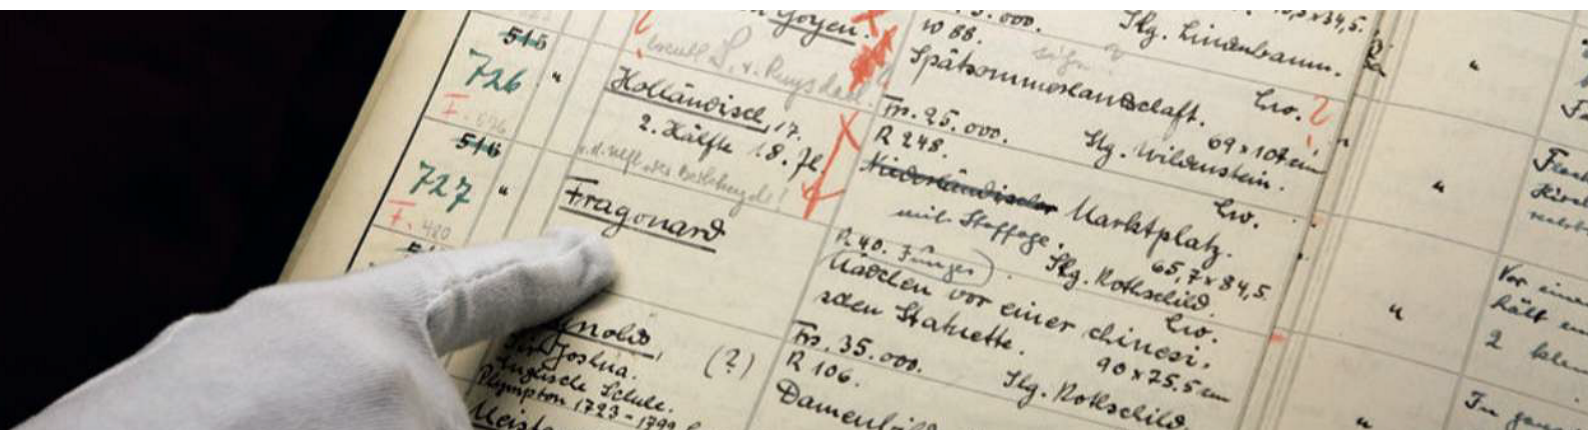 Goyen.
515
726 "
I.
L. v. Ruysdael.
Holländisch, 17.
2. Hälfte 18. Jh.
516
727 "
I. 420
Fragonard
Sir Joshua. (?)
Englische Schule.
Plympton 1723-1792
Meist
.000. Slg. Lindenbaum.
W 88.
sign?
Spätsommerlandschaft. Lw. ?
69 x 107 cm
Frs. 25.000. Slg. Wildenstein.
R 248.
Niederländischer Marktplatz. Lw.
mit Staffage. 65,7 x 84,5.
Slg. Rothschild.
R 40.
Mädchen vor einer chinesi- Lw.
schen Statuette. 90 x 75.5 cm
Frs. 35.000. Slg. Rothschild.
R 106.
Vor eine
hält
2
In